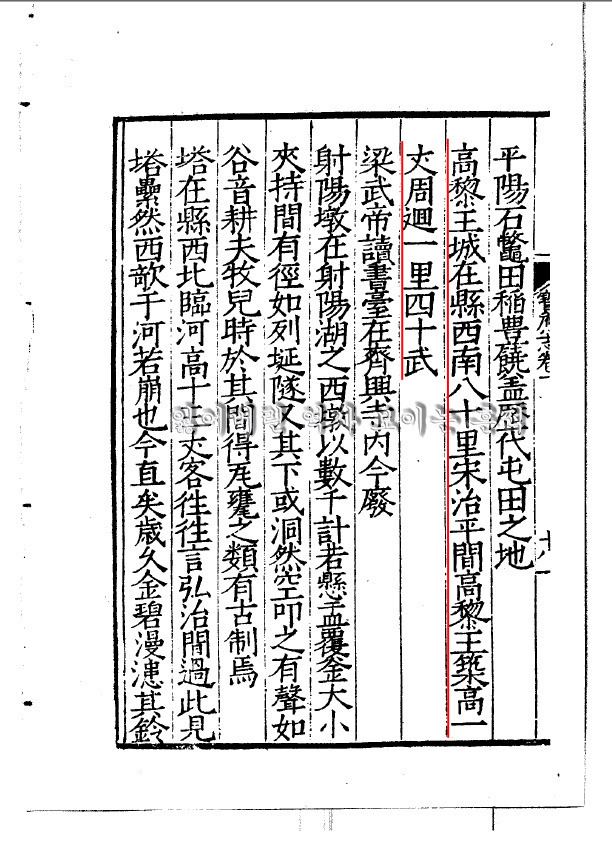 平陽石鼈田稻豊饒盖歴代屯田之地
高黎王城在縣西南八十里宋治平間高黎王築高一
丈周迴一里四十武
梁武帝讀書臺在齊興寺内今廢
射陽墩在射陽湖之西墩以數千計若懸盂覆釜大小
夾持間有徑如列埏隧又其下或洞然空叩之有聲如
谷音耕夫牧兒時於其間得瓦甕之類有古制焉
塔在縣西北臨河高十五丈客徃徃言弘治間過此見
塔纍然西欹于河若崩也今直矣歳久金碧漫漶其鈴